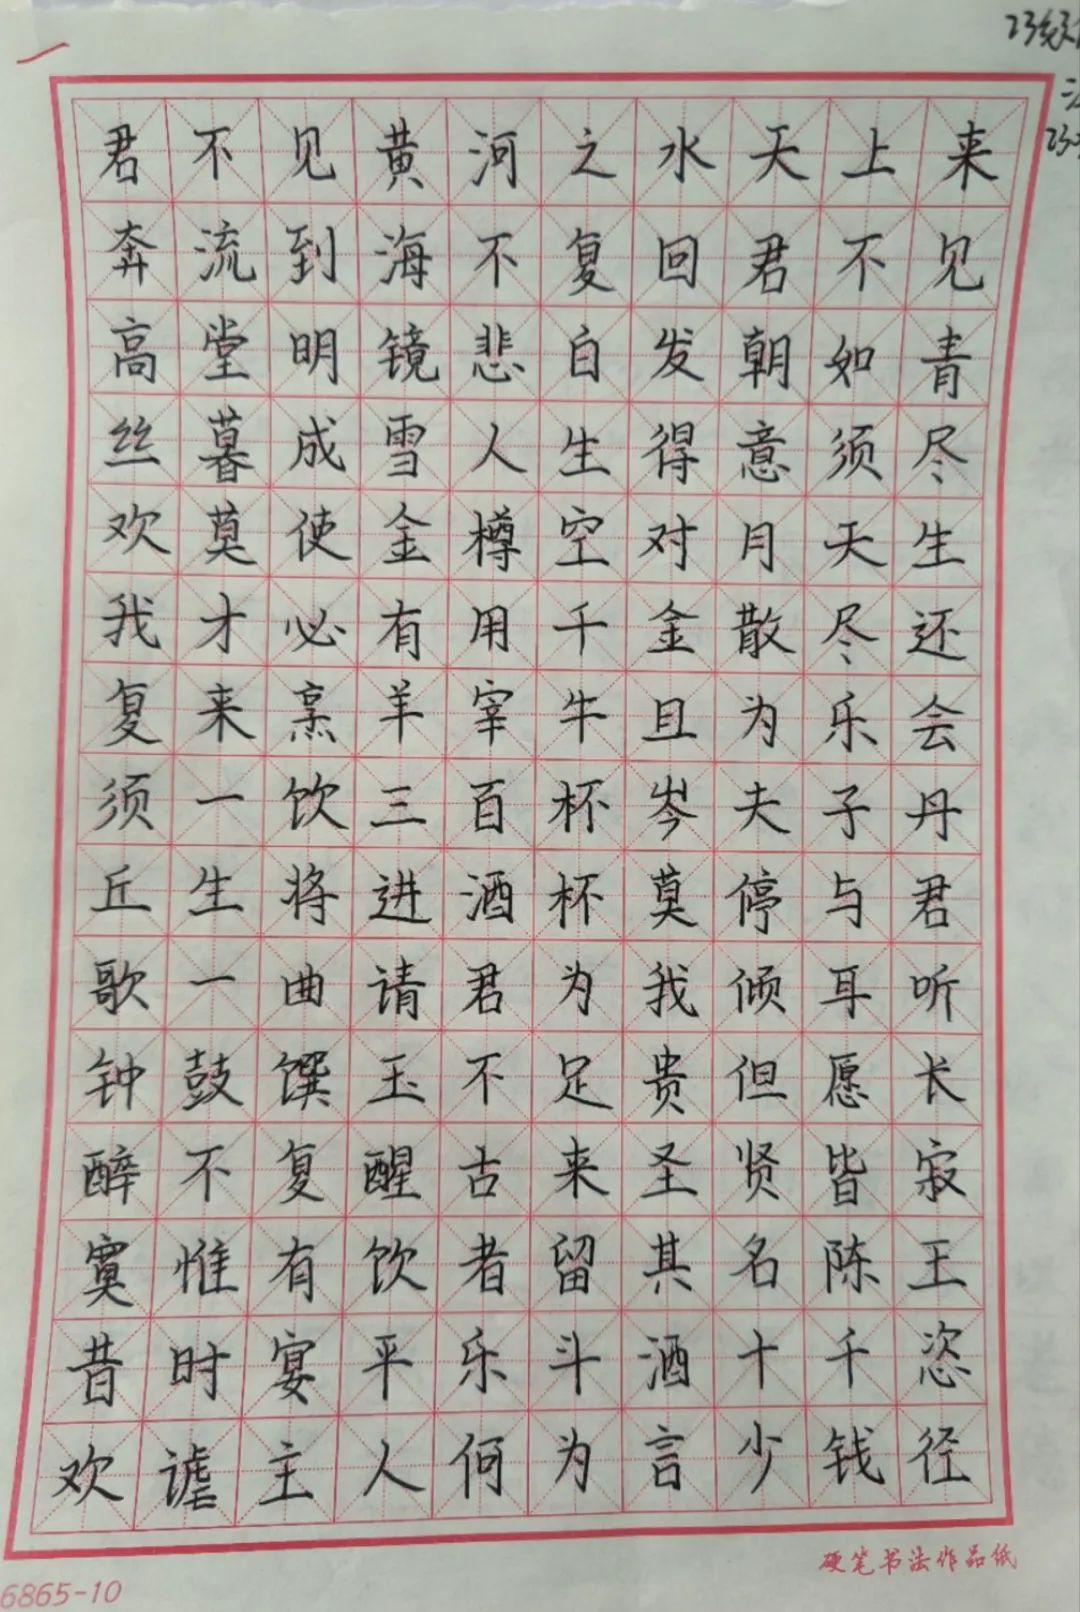 君不见黄河之水天上来
奔流到海不复回君不见
高堂明镜悲白发朝如青
丝暮成雪人生得意须尽
欢莫使金樽空对月天生
我才必有用千金散尽还
复来烹羊宰牛且为乐会
须一饮三百杯岑夫子丹
丘生将进酒杯莫停与君
歌一曲请君为我倾耳听
钟鼓馔玉不足贵但愿长
醉不复醒古来圣贤皆寂
寞惟有饮者留其名陈王
昔时宴平乐斗酒十千恣
欢谑主人何为言少钱径
硬笔书法作品纸
6865-10